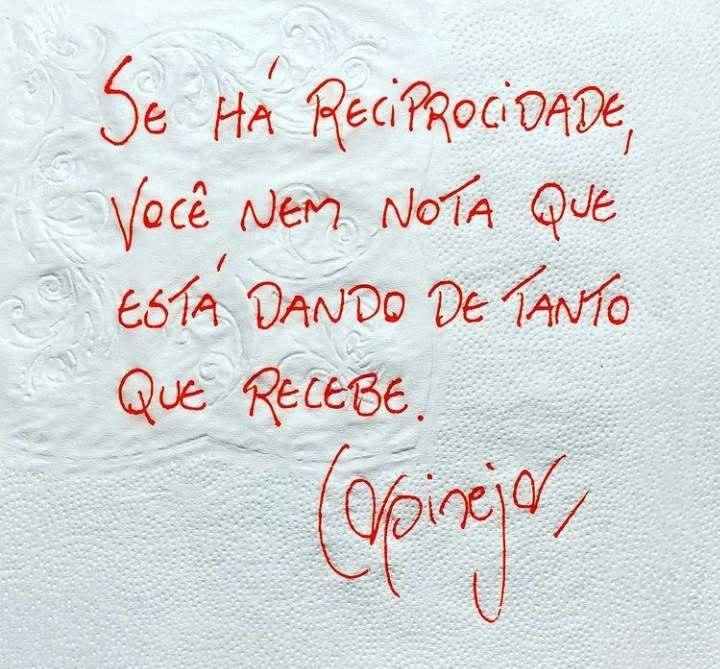 SE HÁ RECIPROCIDADE,
VOCÊ NEM NOTA QUE
ESTÁ DANDO DE TANTO
QUE RECEBE.
Carpinejar